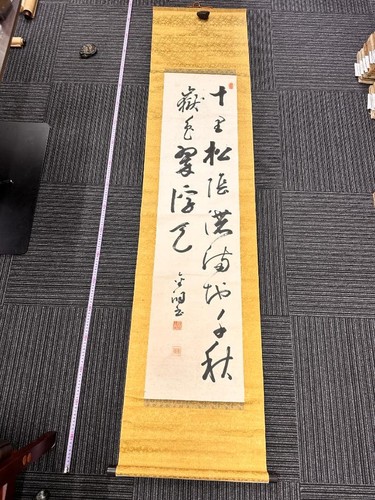 十里松陰濃滿地千秋
嶽色翠浮天